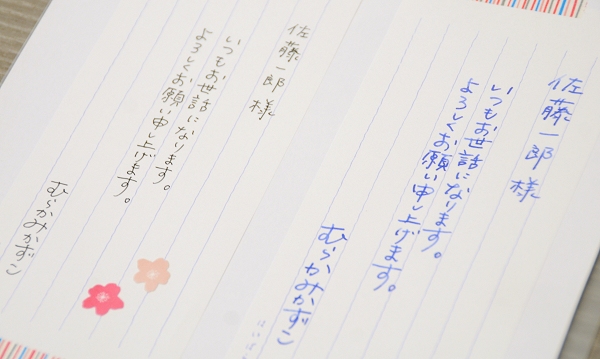 佐藤一郎 様
いつもお世話になります。
よろしくお願い申し上げます。
むらかみかずこ
佐藤一郎 様
いつもお世話になります。
よろしくお願い申し上げます。
むらかみかずこ